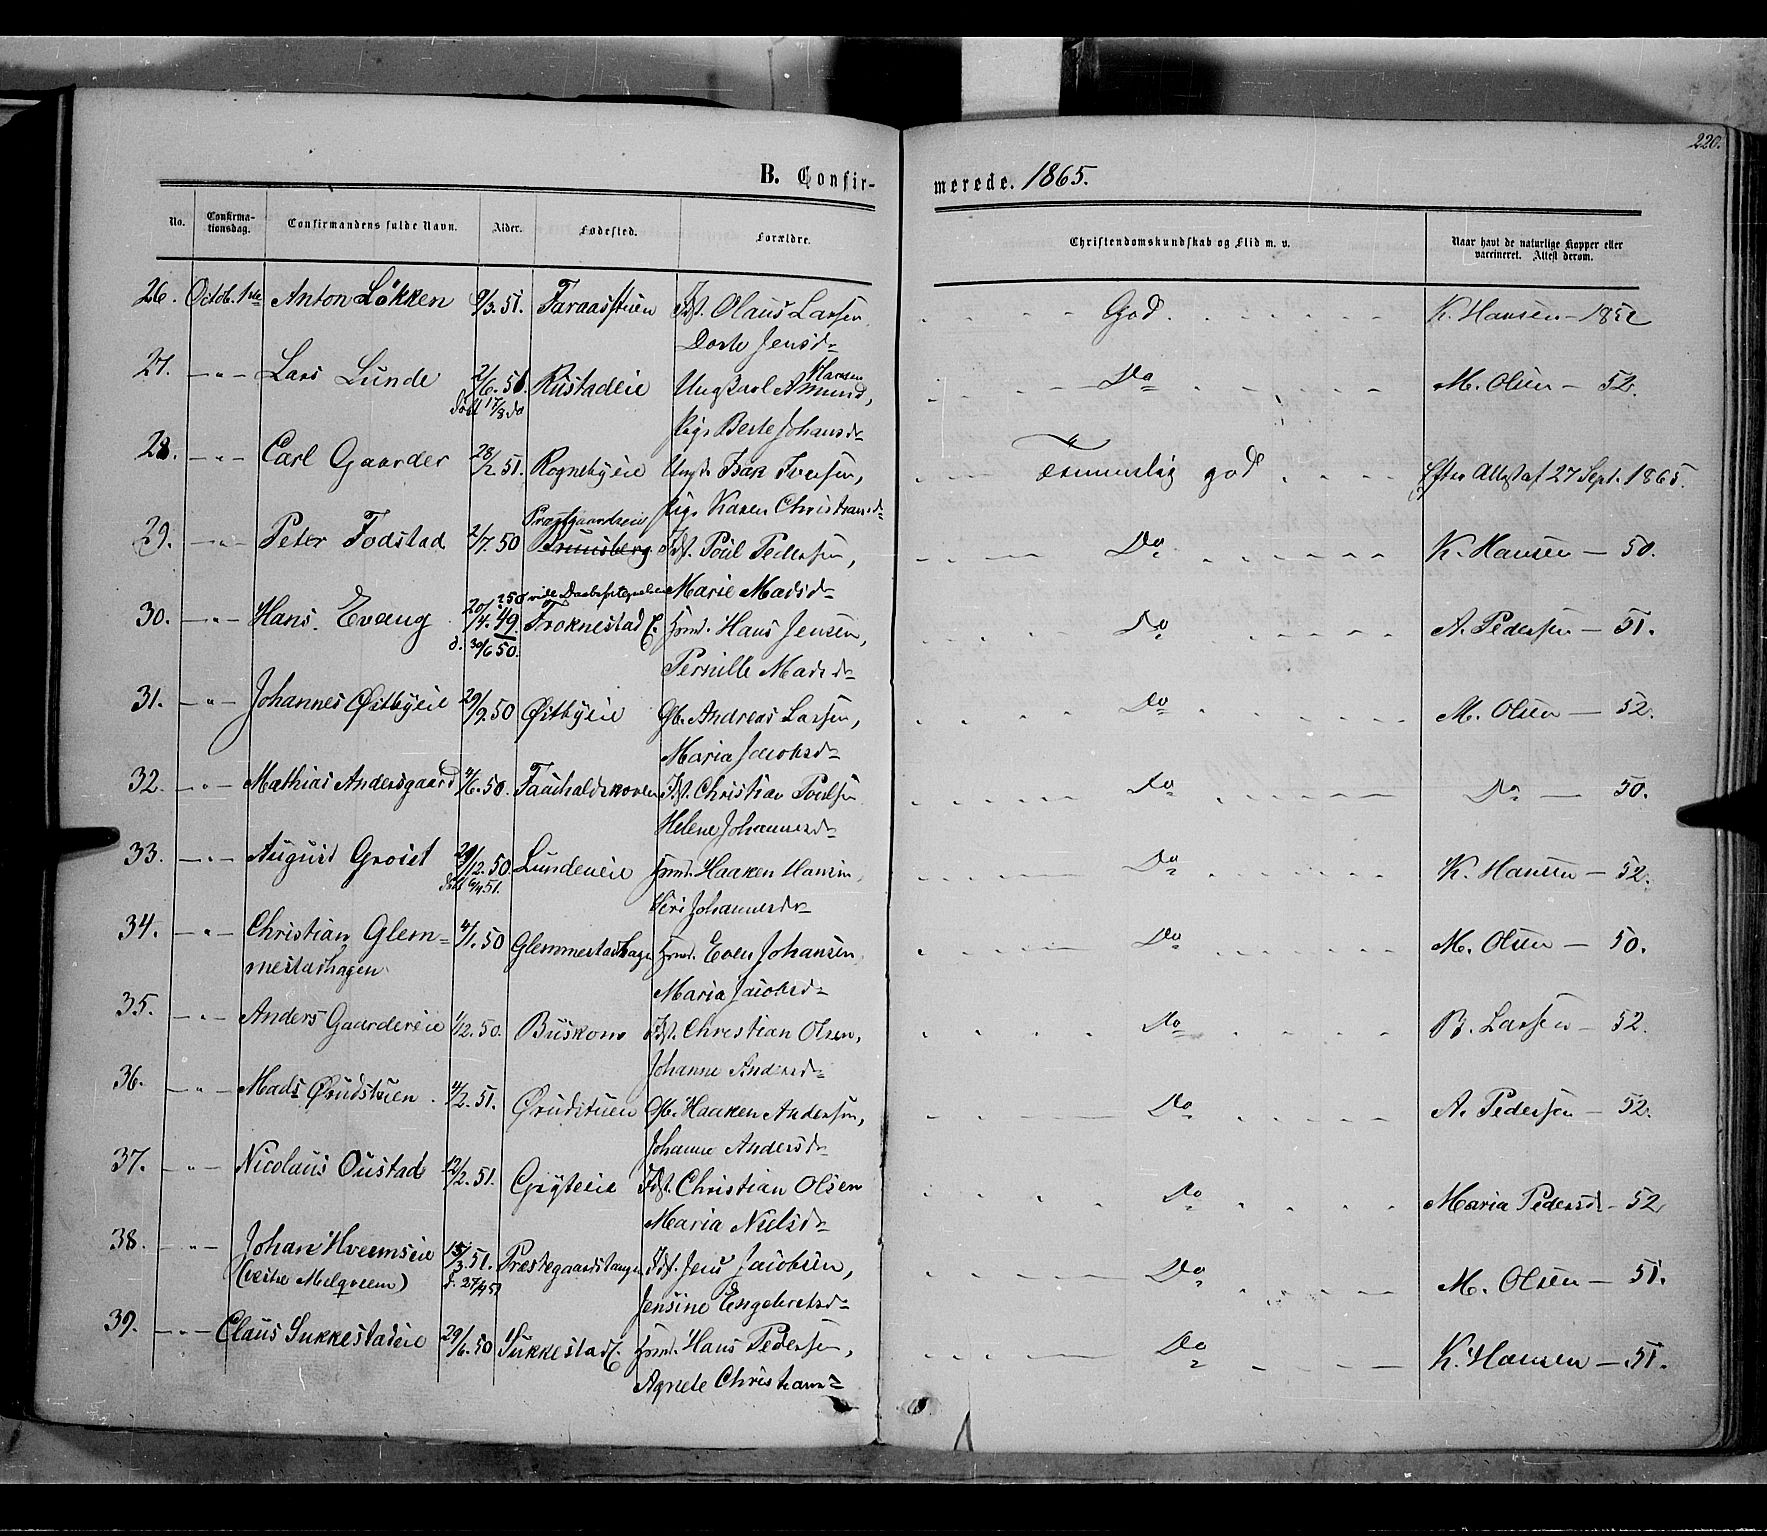 220.
B. Confirmerede. 1865.
No. Confirmationsdag. Confirmandens fulde Navn. Alder. Fødested. Forældre. Christendomskundskab og Flid m. v. Naar havt de naturlige Kopper eller vaccineret. Attest derom.
26. Octob. 1ste Anton Løkken 9/3. 51. Faraasstuen Idst. Olaus Larsen God. K. Hansen - 1852
Dorte Jensd
27. - " - Lars Lunde 2/6. 51. Rustadeie Ungkarl Amund Hansen, Do M. Olsen - 52.
døbt 17/8 do Pige Berte Johansd
28. - " - Carl Gaarder 28/2 51. Rognebyeie Ungk. Isak Iversen, Temmelig god Efter Attest af 27 Sept. 1865.
Pige Karen Christiansd
29. - " - Peter Fodstad 2/7. 50 Præstgaardseie Idst. Poul Pedersen, Do K. Hansen - 50.
Marie Madsd
30. - " - Hans Evang 20/4. 49. Froknestad E. Hans Jensen, Do A. Pedersen - 51.
d. 30/6 50. Pernille Madsd
31. - " - Johannes Østbyeie 29/9. 50 Østbyeie Gb. Andreas Larsen, Do M. Olsen - 52.
Maria Jacobsd
32. - " - Mathias Andersgaard 4/6. 50. Idst. Christian Poulsen Do Do - 50.
Helene Johannesd
33. - " - August Groist 29/12. 50. Lundeneie Haaken Hansen, Do K. Hansen - 52.
døbt 6/4 51. Siri Johannesd
34. - " - Christian Glem- 4/1. 50 Glemmestadhagen Even Johansen, Do M. Olsen - 50.
mestadhagen Maria Jacobsd
35. - " - Anders Gaardereie 1/12. 50. Buskom Idst. Christian Olsen, Do B. Larsen - 52.
Johanne Andersd
36. - " - Mads Ørudstuen 4/2. 51. Ørudstuen Gb. Haaken Andersen, Do A. Pedersen - 52.
Johanne Andersd
37. - " - Nicolaus Oustad 12/2. 51. Gryteeie Idst. Christian Olsen Do Maria Pedersd - 52
Maria Nielsd
38. - " - Johan Hveemseie 15/3. 51. Præstegaardstangen Idst. Jens Jacobsen, Do M. Olsen - 51.
(vestre Melqveem) d. 27/4 51 Jensine Engebretsd
39. - " - Claus Sukkestadeie 29/6. 50 Sukkestad E. Hans Pedersen, Do K. Hansen - 51.
Agnete Christians